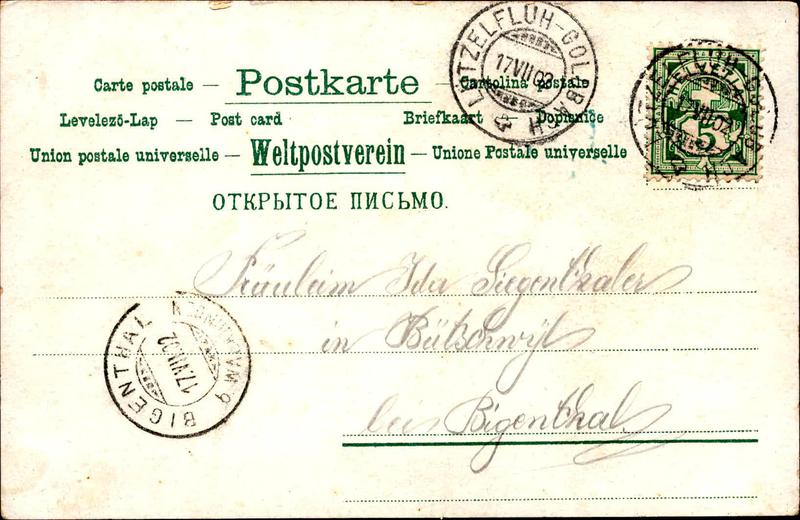 Carte postale – Postkarte – Cartolina postale
Levelező-Lap – Post card Briefkaart – Dopisnice
Union postale universelle – Weltpostverein – Unione Postale universelle
ОТКРЫТОЕ ПИСЬМО.
LÜTZELFLÜH-GOLDBACH
17 VII 02
HELVETIA
5
Fräulein Ida Siegenthaler
in Bütschwyl
bei Bigenthal.
BIGENTHAL
17 VII 02